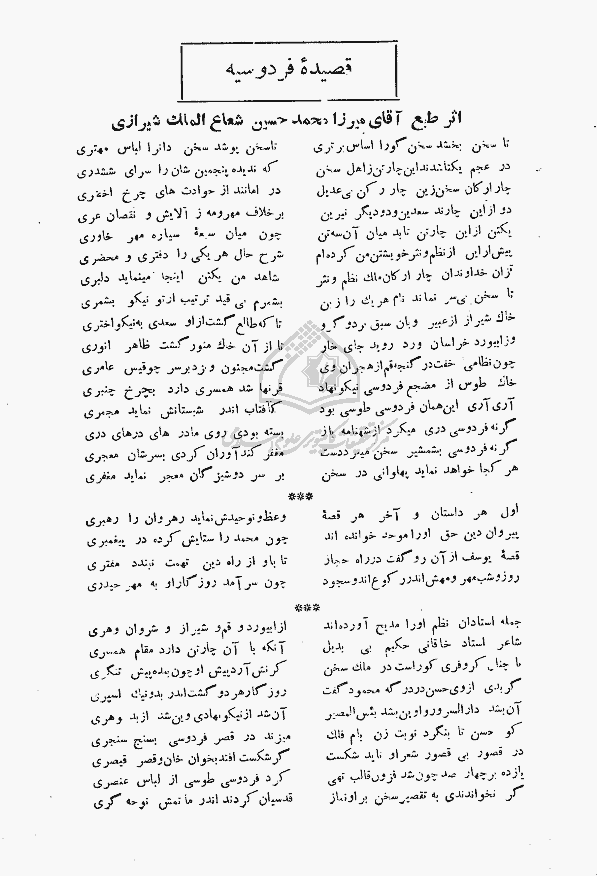 قصیدۀ فردوسیه
اثر طبع آقای میرزا محمد حسین شعاع الملک شیرازی
تا سخن بخشد سخن گو را اساس برتری تا سخن پوشد سخن دانرا لباس مهتری
در عجم یکتا شدند این چارتن ز اهل سخن که ندیده پنجمین شان را سرای ششدری
چار ارکان سخن زین چار رکن بی عدیل در امانند از حوادث های چرخ اخضری
دو از این چارند سعدین و دو دیگر نیرین برخلاف مهر و مه ز آلایش و نقصان عری
یکتن از این چارتن تابد میان آن سه تن چون میان سبعۀ سیاره مهر خاوری
پیش ازاین از نظم و نثر خویشتن من کرده ام شرح حال هر یکی را دفتری و محضری
زان خداوندان چار ارکان ملک نظم و نثر شاهد من یکتن اینجا مینماید دلبری
تا سخن بی سر نماند نام هر یک را ز بن بشمرم بی قید ترتیب ار تو نیکو بشمری
خاک شیراز از عبیر و بان سبق برد و گرو تا که طالع گشت از او سعدی به نیکو اختری
وز ابیورد خراسان ورد روید جای خار تا از آن خاک منور گشت ظاهر انوری
چون نظامی خفت در گنجه قم از هجران وی گشت مجنون و بزد بر سر چو قیس عامری
خاک طوس از مضجع فردوسی نیکو نهاد قرنها شد همسری دارد بچرخ چنبری
آری آری این همان فردوسی طوسی بود کافتاب اندر شبستانش نماید مجمری
گر نه فردوسی دری میکرد از شهنامه باز بسته بودی روی مادر های درهای دری
گر نه فردوسی بشمشیر سخن میبرد دست مغفر کند آوران کردی بسرشان معجری
هر کجا خواهد نماید پهلوانی در سخن بر سر دوشیزگان معجر نماید مغفری
***
اول هر داستان و آخر هر قصۀ وعظ و توحیدش نماید رهروان را رهبری
پیروان دین حق او را موحد خوانده اند چون محمد را ستایش کرده در پیغمبری
قصۀ یوسف از آن رو گفت در راه حجاز تا باو از راه دین تهمت نبندد مفتری
روز و شب مهر و مهش اندر رکوع اند و سجود چون سر آمد روزگار او به مهر حیدری
***
جمله استادان نظم او را مدیح آورده اند از ابیورد و قم و شیراز و شروان و هری
شاعر استاد خاقانی حکیم بی بدیل آنکه با آن چارتن دارد مقام همسری
با چنان کر و فری کو راست در ملک سخن کرنش آرد پیش او چون بنده پیش تنگری
گر بدی از وی حسن در درگه محمود گفت روزگار هر دو گشت اندر بدو نیک اسپری
آن بشد دار السرور و این بشد بئس المصیر آن شد از نیکو نهادی وین شد از بد گوهری
کو حسن تا بنگرد نوبت زن بام فلک میزند در قصر فردوسی بسنج سنجری
در قصور بی قصور شعر او ناید شکست گر شکست افتد بخوان خان و قصر قیصری
یازده بر چهار صد چون شد فزون قالب تهی کرد فردوسی طوسی از لباس عنصری
گر نخواندندی به تقصیر سخن بر او نماز قدسیان کردند اندر ماتمش نوحه گری